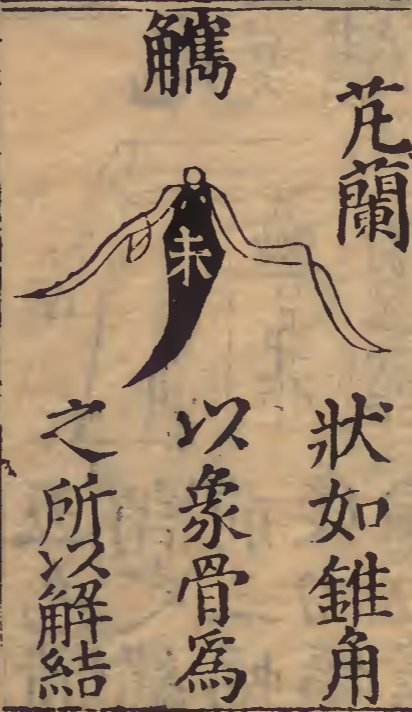 芄蘭
觽
朱
狀如錐角
以象骨爲
之所以解結